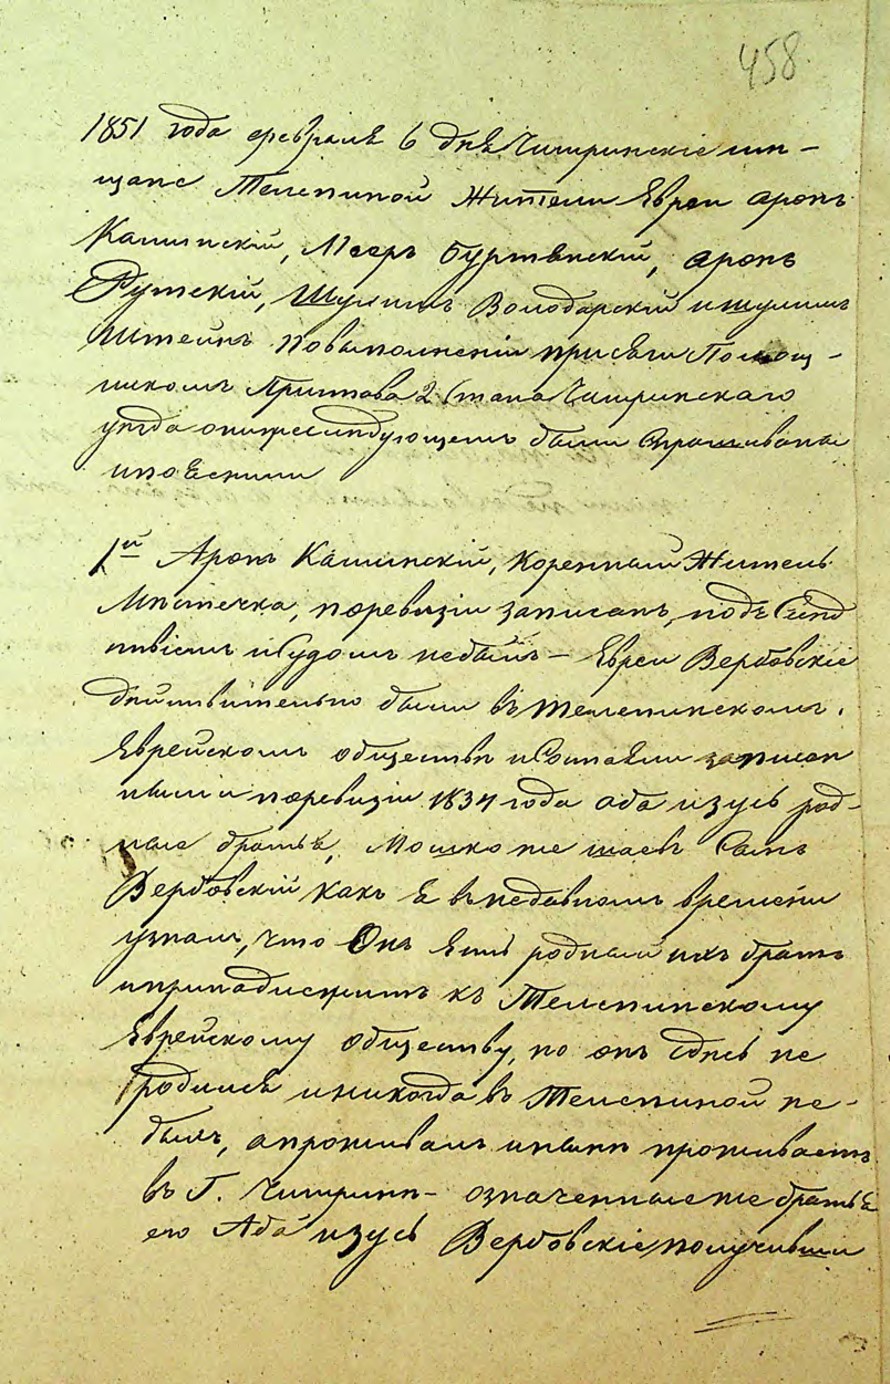 458
1851 года февраля 6 дня Чигиринскіе мѣ-
щане Телепиной жители Евреи Аронъ
Калинскій, Мееръ Буртянскій, Аронъ
Рутскій, Шулимъ Володарскій и Шулимъ
Штейнъ по выполненіи присяги Помощ-
никомъ Пристава 2 Стана Чигиринскаго
уѣзда о нижеслѣдующемъ были спрашиваны
и пояснили
1й Аронъ Калинскій, коренный житель
Мѣстечка, по ревизіи записанъ, подъ Слѣд
ствіемъ и Судомъ не былъ – Евреи Вербовскіе
дѣйствительно были въ Телепинскомъ
Еврейскомъ обществѣ и Состояли записан
ными по ревизіи 1834 года Аба и Зусь род-
ные братья, Мошко же Шаевъ Сынъ
Вербовскій какъ я въ недавномъ времени
узналъ, что Онъ Есть родный ихъ братъ
и принадлежитъ къ Телепинскому
Еврейскому обществу, но онъ здѣсь не
родился и никогда въ Телепиной не-
былъ, а проживалъ и нынѣ проживаетъ
въ Г. Чигиринѣ – означенные же братья
его Аба и Зусь Вербовскіе получивши